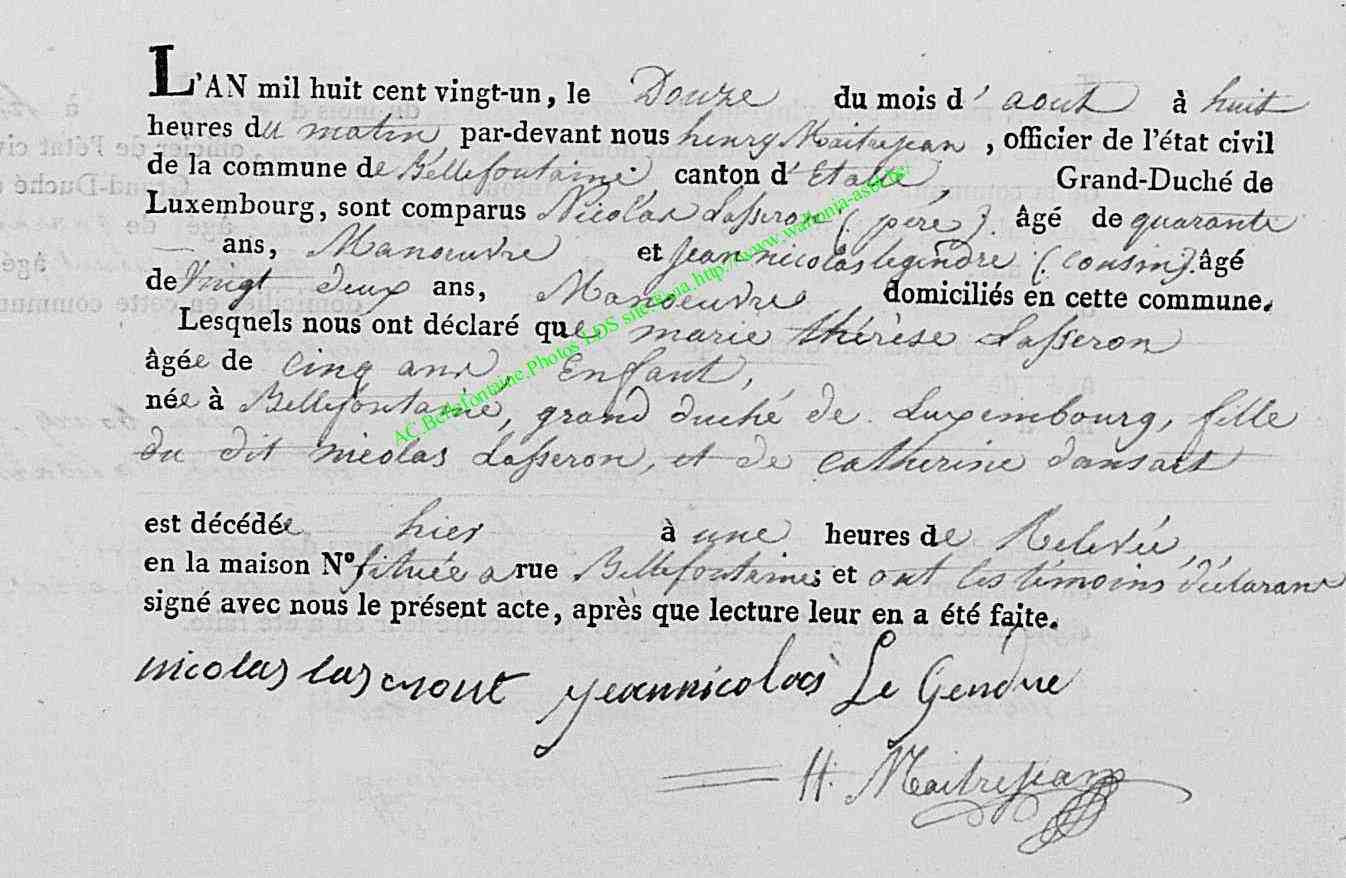 L'AN mil huit cent vingt-un, le Douze du mois d'aout à huit
heures du matin, par-devant nous henry Maitrejean, officier de l'état civil
de la commune de Bellefontaine, canton d'Etalle, Grand-Duché de
Luxembourg, sont comparus Nicolas Lasseron (père). âgé de quarante
— ans, Manoeuvre et jean nicolas legendre (cousin). âgé
de vingt deux ans, Manoeuvre domiciliés en cette commune.
Lesquels nous ont déclaré que marie thérèse Lasseron
âgée de cinq ans, Enfant,
née à Bellefontaine, grand duché de Luxembourg, fille
du dit nicolas Lasseron, et de catherine dansart
est décédée hier à une heures de Relevée,
en la maison N° située a rue Bellefontaine; et ont les témoins déclarans
signé avec nous le présent acte, après que lecture leur en a été faite.
nicolas lascront jeannicolas Le Gendre
H. Maitrejean
AC.Bellefontaine.Photos LDS site http://www.wallonia-asbl.be/